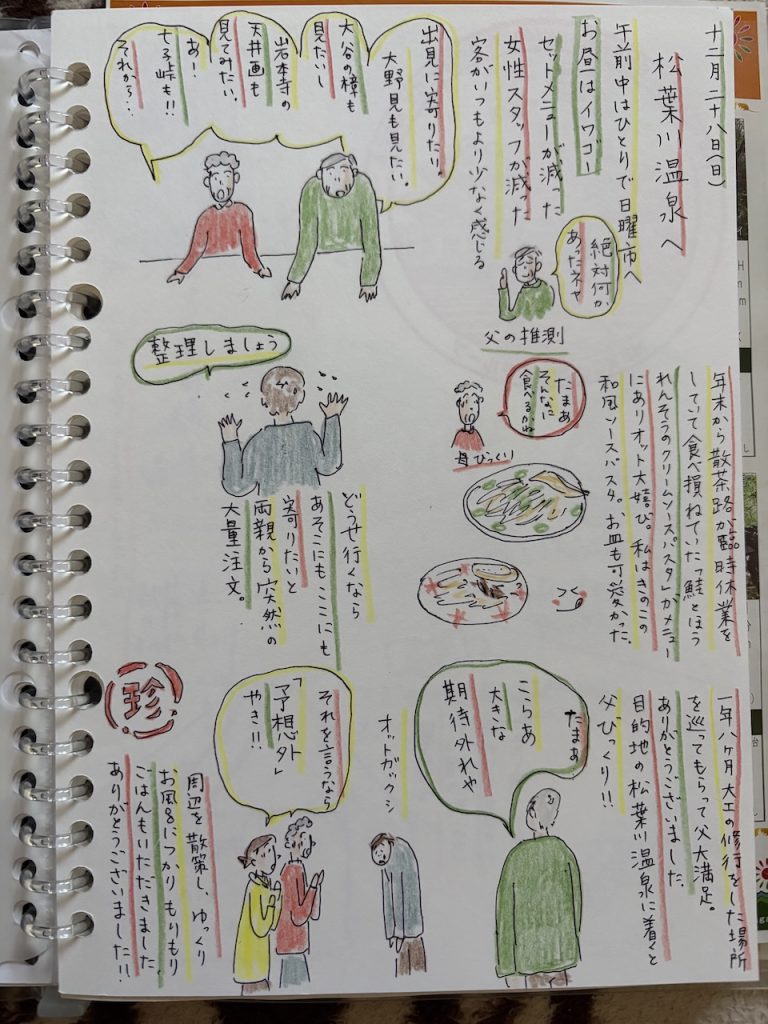 十二月二十八日(日)
松葉川温泉へ
午前中はひとりで日曜市へ
お昼はイワゴー
セットメニューが減った
女性スタッフが減った
客がいつもより少なく感じる
絶対何か
あったネャ
父の推測
出見に寄りたい。
大野見も見たい。
大谷の樟も
見たいし
岩本寺の
天井画も
見てみたい。
あー
七子峠も!!
それから…
年末から散茶路が臨時休業を
していて食べ損ねていた「鮭とほう
れんそうのクリームソースパスタ」がメニュー
にありオット大喜び。私はきのこの
和風ソースパスタ。お皿も可愛かった。
たまぁ
そんなに
食べるかね
母びっくり
整理しましょう
どうせ行くなら
あそこにもここにも
寄りたいと
両親から突然の
大量注文。
一年八ヶ月大工の修行をした場所
を巡ってもらって父大満足。
ありがとうございました。
目的地の松葉川温泉に着くと
父びっくり!!
たまぁ
こらあ
大きな
期待外れや
オットガックシ
それを言うなら
「予想外」
やき!!
周辺を散策し、ゆっくり
お風呂につかりもりもり
ごはんもいただきました。
ありがとうございました!!
珍